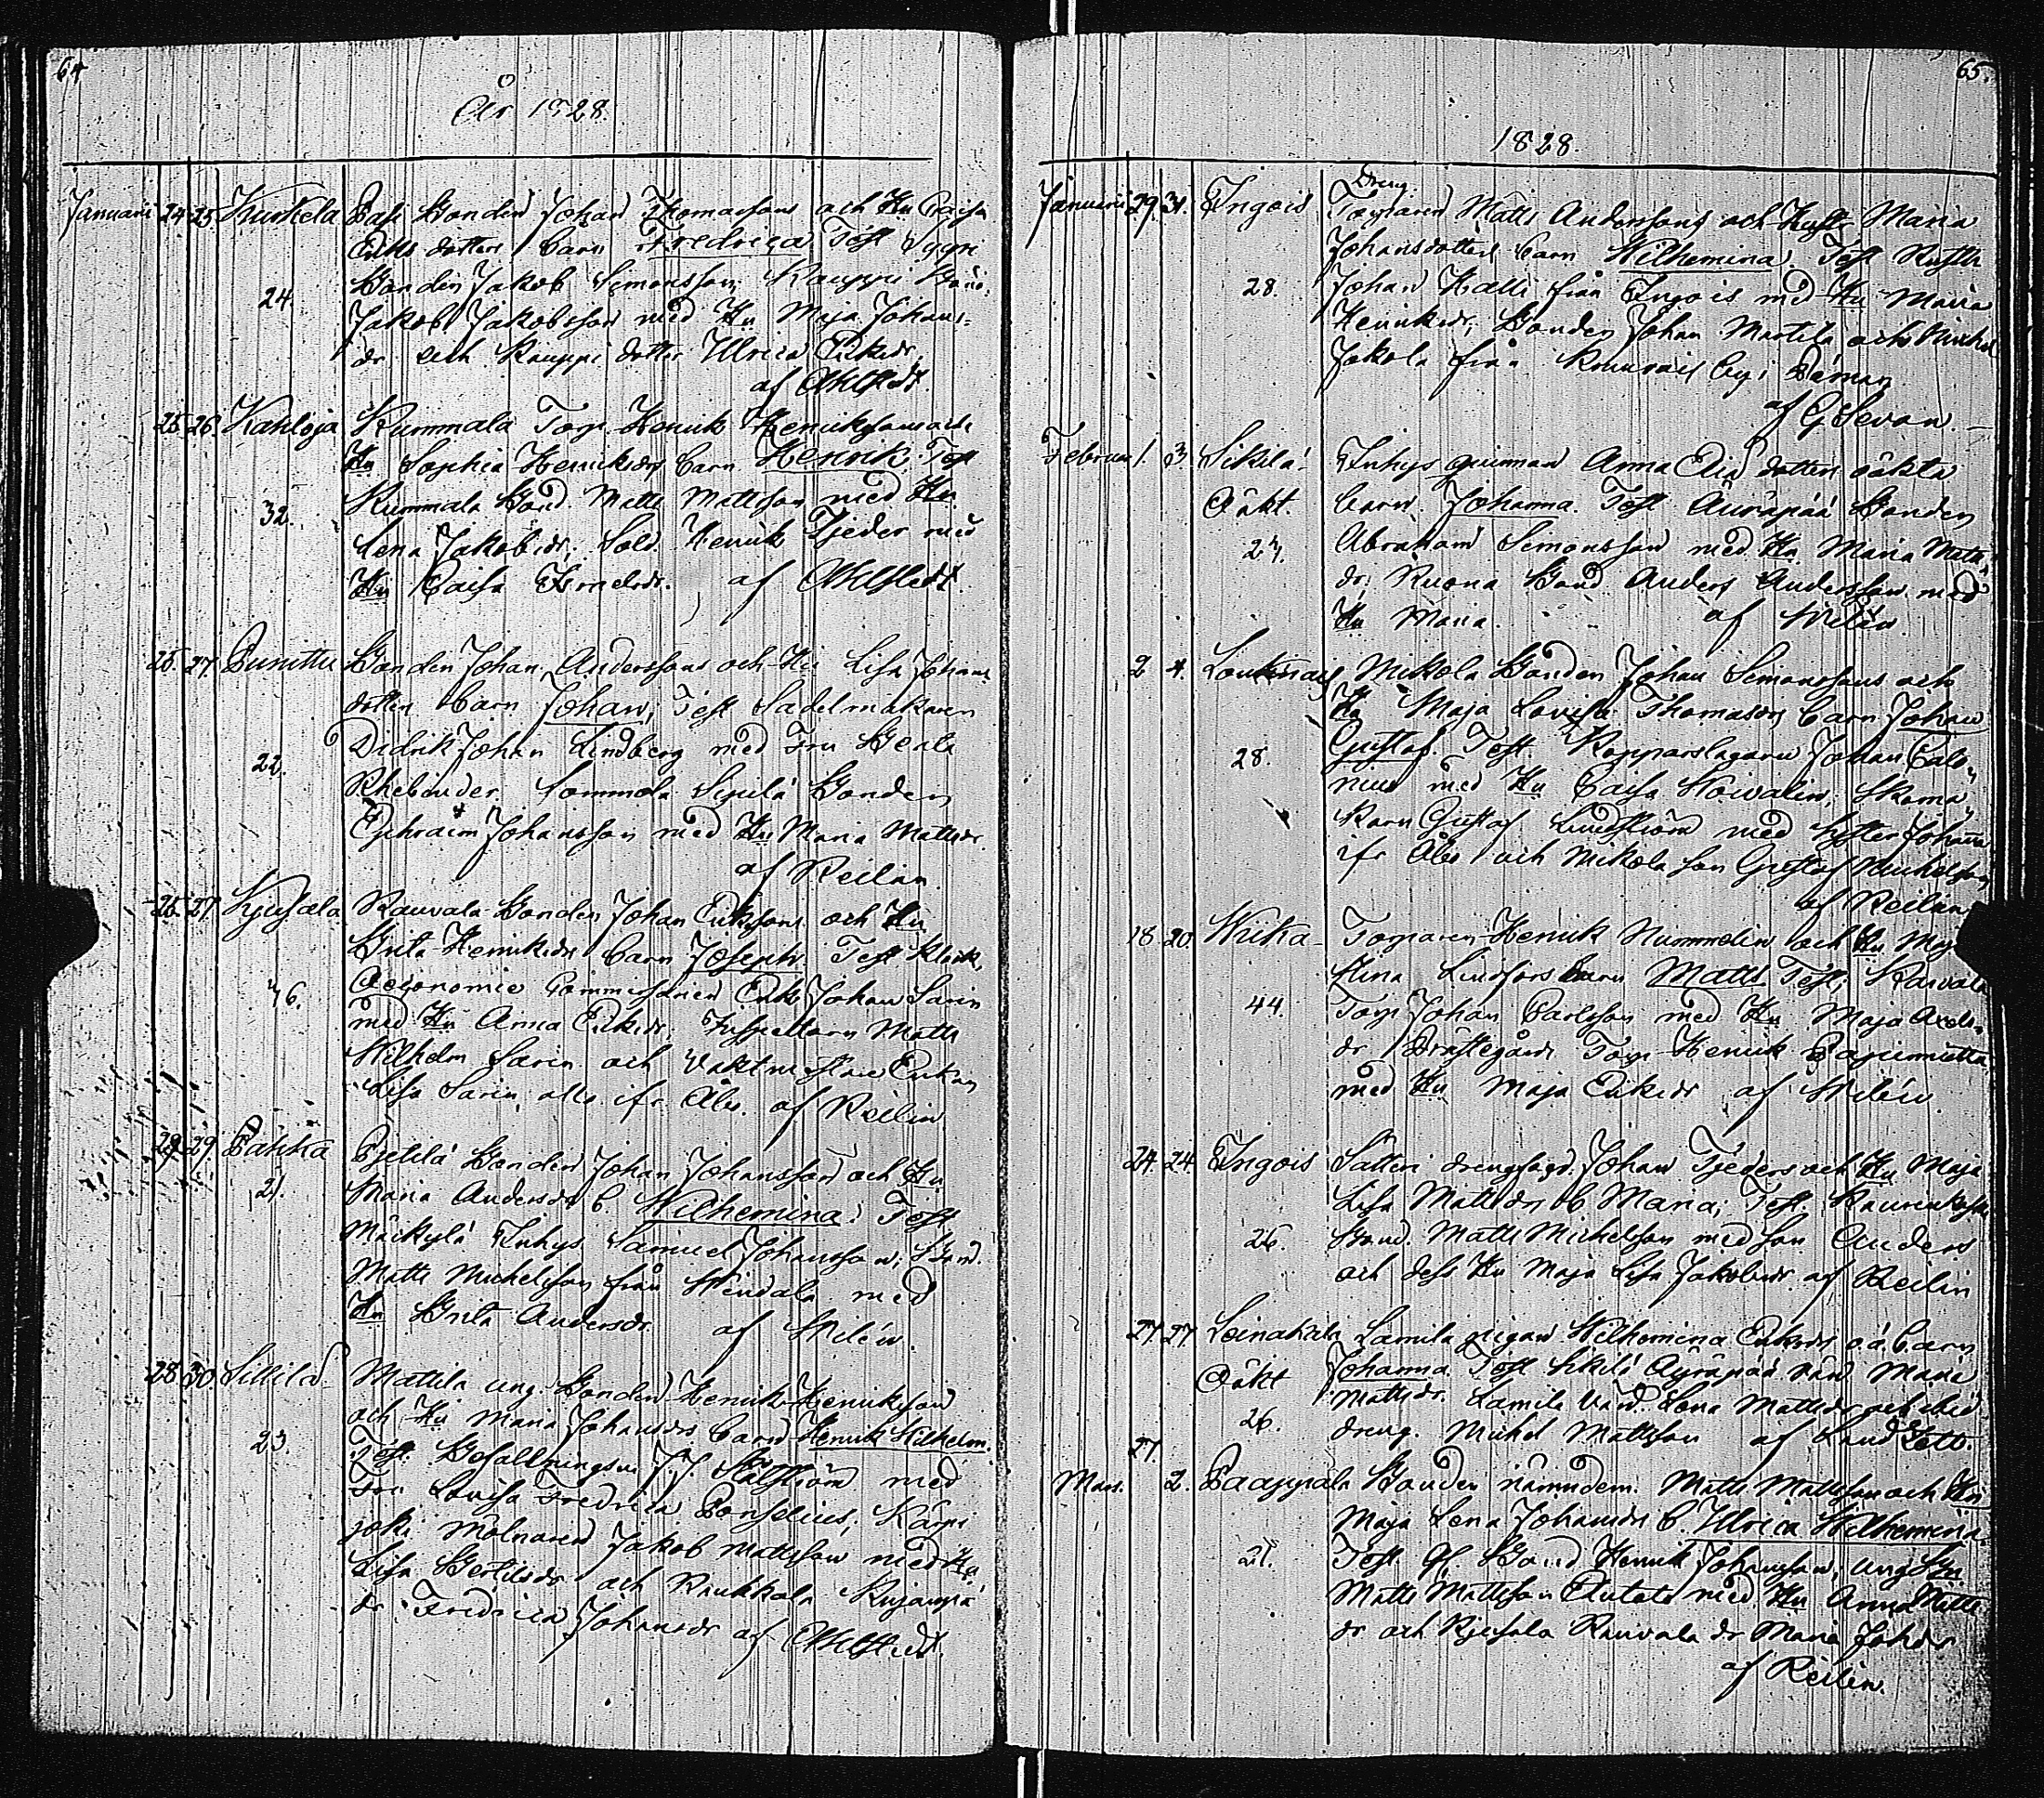 64.
År 1828.
Januarii 24 25 Kurkela Pasi Bonden Johan Thomassons och Hu Caisa
Eriks dotters barn Fredrica Test Sypri
24. Bonden Jakob Simonsson, Kauppi Bond.
Jakob Jakobsson med Hu Maja Johans-
dr. och Kauppi dotter Ulrica Eriksdr.
af Ahlstedt.
25 26. Kahloja Kummala Torp. Henrik Henrikssons och
Hu Sophia Henriksdrs barn Henrik. Test
32. Kummala Bond. Matts Mattsson med Hu
Lena Jakobsdr., Sold. Henrik Tjeder med
Hu Caisa Israelsdr. af Ahlstedt.
25. 27. Bonden Johan Anderssons och Hu Lisa Johans
dotters barn Johan, Test Sadelmakaren
22. Didrik Johan Lindberg med Fru Beata
Rhebinder. Sommola Sipilä Bonden
Ephraim Johansson med Hu Maria Mattsdr.
af Reilin.
25. 27. Kjusala Rauvala Bonden Johan Erikssons och Hu
Brita Henriksdrs barn Joseph Test
46. Oeconomie Commissarien Eric Johan Sarin
med Hu Anna Eriksdr. Inspectorn Matts
Wilhelm Sarin och Vaktmästare Enkan
Lisa Sarin alla ifr. Åbo. af Reilin
29. 29. Pahka Bonden Johan Johansson och Hu
21. Maria Andersdr b. Wilhemina. Test
Mäikylä Inhys Samuel Johansson, Bond.
Matts Michelsson från Hendala med
Hu Brita Andersdr. af Wilén.
28 30. Sillilä Mattila ung. Bonden Henrik Henriksson
och Hu Maria Johansdrs barn Henrik Wilhelm.
23. Test. Befallningsm. J. J. med
Fru Lovisa Fredrica Ponselius, Karpi
joki Mölnaren Jakob Mattsson med Hu
Lisa Bertilsdr och Raukkala
dr. Fredrica Johansdr af Ahlstedt.
65.
1828.
Dreng.
Januarii 29. 31. Ingois Torparen Matts Anderssons och Hustr. Maria
Johansdotters barn Wilhemina. Test
28. Johan Halli från Ingois med Hu Maria
Henriksdr, Bonden Johan Martila och Michel
Jakola från by i Pämar
af G Sevon
Februarii 1. 3. Sikilä Inhys qvinnan Anna Elia dotters oäkta
Oäkt. barn. Johanna. Test Äuräpää Bonden
27. Abraham Simonsson med Hu Maria Matts
dr. Ruona Bond Anders Andersson med
Hu Maria. af Wilén.
2 4. Loukinais Mickola Bonden Johan Simonssons och
Hu Maja Lovisa Thomasdrs barn Johan
28. Gustaf. Test. Kopparslagaren Johan Calo-
nius med Hu Caisa Skoma-
karn Gustaf Lindström med Syster Johanna
ifr Åbo och Mickola son Gustaf Michelsson
af Reilin
18. 20. Wiika Torparen Henrik Nummelin och Hu Maja
Stina Lindfors barn Matts Test, Raivala
44. Torp Johan Carlsson med Hu Maja Anders-
dr. Prästegårds Torp Henrik
med Hu Maja Eriksdr af Wilén.
24. 24 Ingois Säteri drengfogd. Johan Tjeders och Hu Maja
Lisa Mattsdrs b. Maria, Test.
26. Bond. Matts Michelsson med Son Anders
och dess Hu Maja Lisa Jakobsdr. af Reilin
27. 27 Leinakkala Lamila pigan Wilhemina Eriksdr o.ä. barn
Oäkt Johanna. Test Sikilä Äyräpää värd. Maria
26. Mattsdr. Lamila värd. Lena Mattsdr och
dreng. Michel Mattsson af
27.
Mars. 2. Paappala Bonden nämndem. Matts Mattsson och Hu
Maja Lena Johansdr b. Ulrica Wilhemina.
21. Test. Gl. Bond Henrik Johansson, ung Bn
Matts Mattsson Autots med Hu Anna Matts
dr och Kjusala Rauvala dr Maria Johdr
af Reilin.